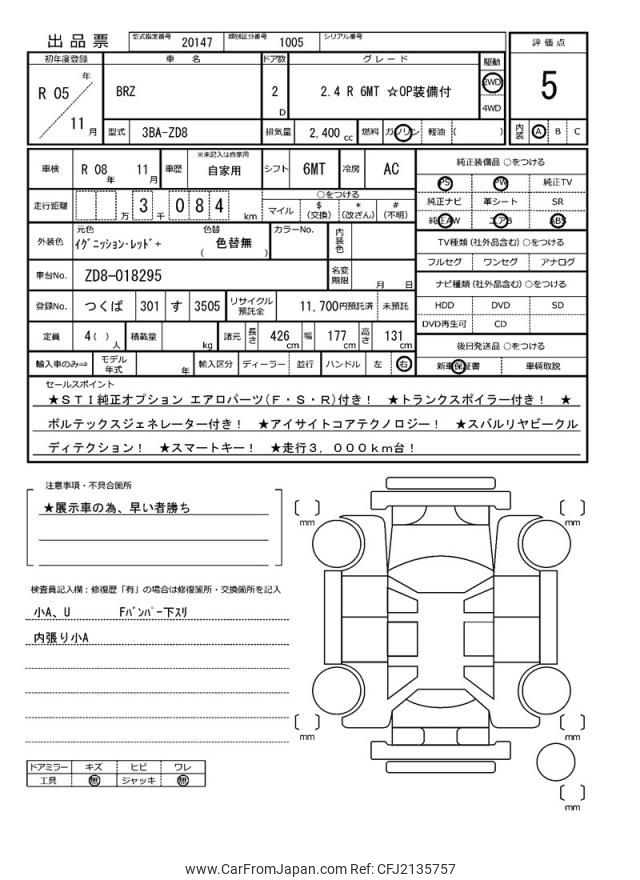 出品票 型式指定番号 20147 類別区分番号 1005 シリアル番号
初年度登録 車名 ドア数 グレード 駆動 評価点
R 05 年 11 月 BRZ 2 D 2.4 R 6MT ☆OP装備付 2WD 4WD 5
型式 3BA-ZD8 排気量 2,400 cc 燃料 ガソリン 軽油 ( ) 内装 A B C
車検 R 08 年 11 月 車歴 ※未記入は自家用 自家用 シフト 6MT 冷房 AC
走行距離 万 3 千 0 8 4 km ○をつける
マイル $ (交換) * (改ざん) # (不明)
外装色 元色 イグニッション・レッド+ 色替 ( 色替無 ) カラーNo. 内装色
車台No. ZD8-018295 名変期限 月 日
登録No. つくば 301 す 3505 リサイクル預託金 11,700円預託済 未預託
定員 4 ( ) 人 積載量 kg 諸元 長さ 426 cm 幅 177 cm 高さ 131 cm
輸入車のみ⇒ モデル年式 年 輸入区分 ディーラー 並行 ハンドル 左 右
純正装備品 ○をつける
PS PW 純正TV
純正ナビ 革シート SR
純正AW エアB ABS
TV種類 (社外品含む) ○をつける
フルセグ ワンセグ アナログ
ナビ種類 (社外品含む) ○をつける
HDD DVD SD
DVD再生可 CD
後日発送品 ○をつける
新車保証書 車輌取説
セールスポイント
★STI純正オプション エアロパーツ(F・S・R)付き! ★トランクスポイラー付き! ★
ボルテックスジェネレーター付き! ★アイサイトコアテクノロジー! ★スバルリヤビークル
ディテクション! ★スマートキー! ★走行3,000km台!
注意事項・不具合箇所
★展示車の為、早い者勝ち
検査員記入欄:修復歴「有」の場合は修復箇所・交換箇所を記入
小A、U Fバンパー下スリ
内張り小A
ドアミラー キズ ヒビ ワレ
工具 無 ジャッキ 無
[ ] mm
[ ] mm
[ ] mm
[ ] mm
[ ] mm
www.CarFromJapan.com Ref: CFJ2135757